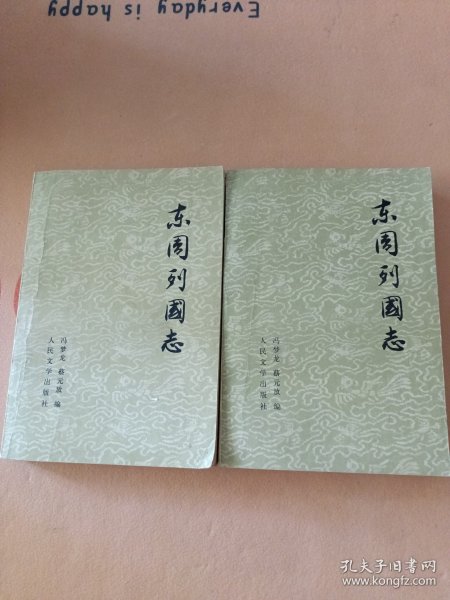 Everyday is happy
东周列國志
冯梦龙 蔡元放 编
人民文学出版社
东周列國志
冯梦龙 蔡元放 编
人民文学出版社
孔夫子旧书网
www.kongfz.com